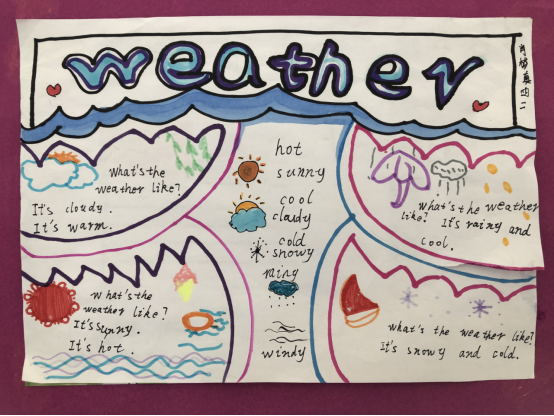 weather
四二
What's the
weather like?
It's cloudy.
It's warm.
hot
sunny
cool
claudy
cold
snowy
rainy
windy
What's the weather
like? It's rainy and
cool.
What's the
weather like?
It's sunny.
It's hot.
What's the weather like?
It's snowy and cold.